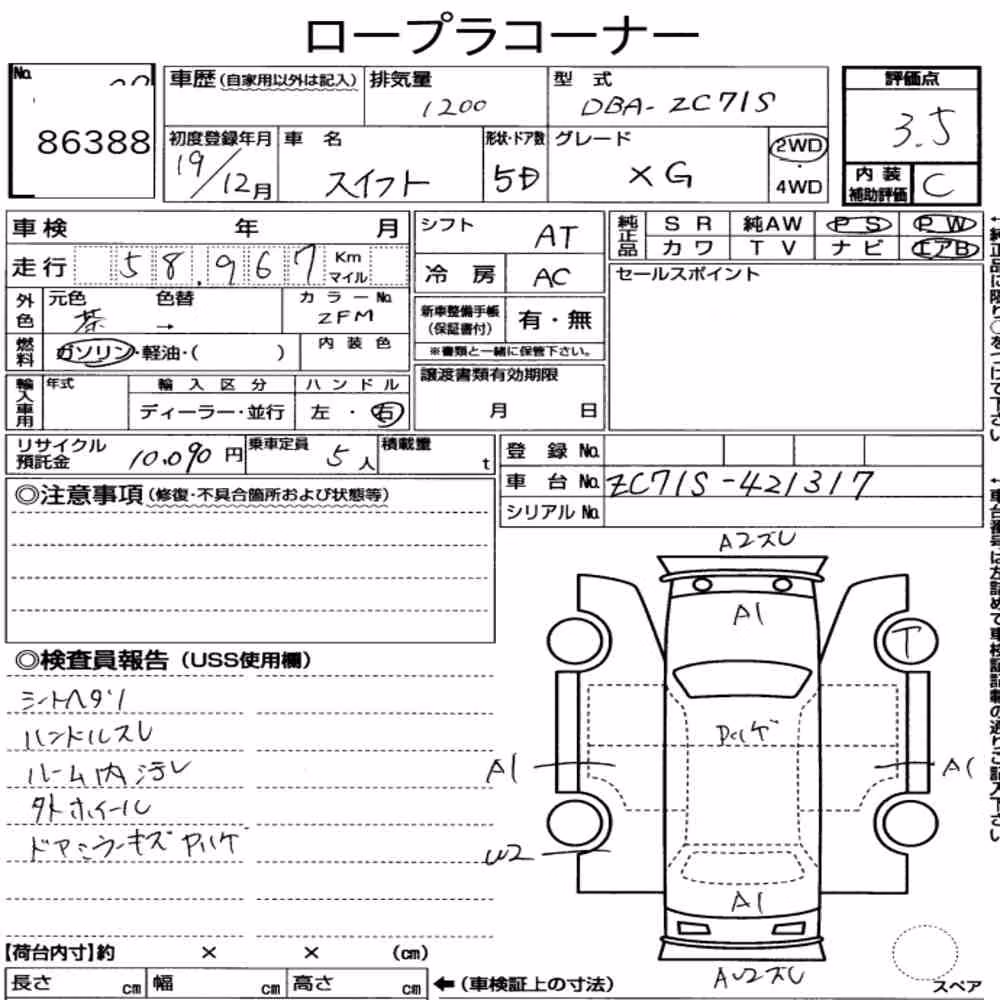 ロープラコーナー
No.
86388
車歴(自家用以外は記入)
排気量
1200
型 式
DBA-ZC71S
評価点
3.5
初度登録年月
19/12月
車 名
スイフト
形状・ドア数
5D
グレード
XG
2WD
・
4WD
内装補助評価
C
車検 年 月
シフト
AT
純正品
SR 純AW PS PW
カワ TV ナビ エアB
走行 58,967 Km マイル
冷房
AC
セールスポイント
外色
元色 色替
茶 →
カラーNo.
ZFM
新車整備手帳
(保証書付)
有・無
※書類と一緒に保管下さい。
燃料
ガソリン・軽油・( )
内装色
輸入車用
年式
輸入区分
ハンドル
ディーラー・並行
左・右
譲渡書類有効期限
月 日
リサイクル預託金
10,090円
乗車定員
5人
積載量
t
登録No.
車台No.
ZC71S-421317
シリアルNo.
◎注意事項(修復・不具合箇所および状態等)
←純正品に限り○をつけて下さい
←車台番号は左詰めで車検証記載の通りご記入下さい
◎検査員報告(USS使用欄)
シートヘタリ
ハンドルスレ
ルーム内汚レ
タトホイール
ドアミラーキズ
A2ズレ
A1
T
A1
A1
W2
A1
スペア
【荷台内寸】約 × × (cm)
長さ cm 幅 cm 高さ cm
←(車検証上の寸法)